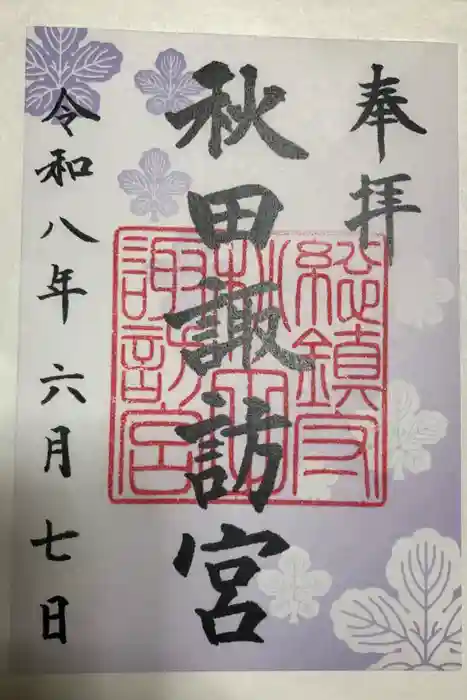 奉拝
秋田諏訪宮
総鎮守
秋田
諏訪宮
令和八年 六月 七日